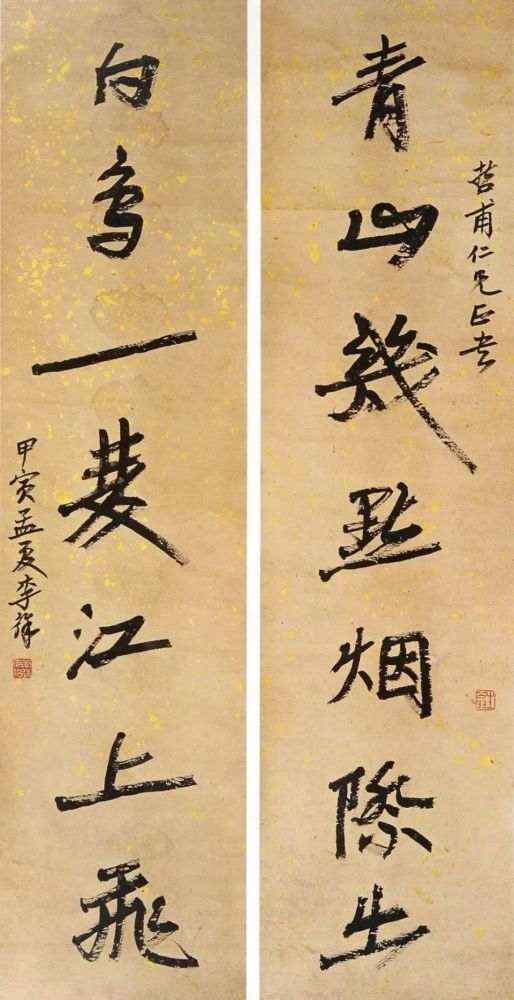 青山幾點烟際出
哲甫仁兄正
白鳥一雙江上飛
甲寅孟夏李